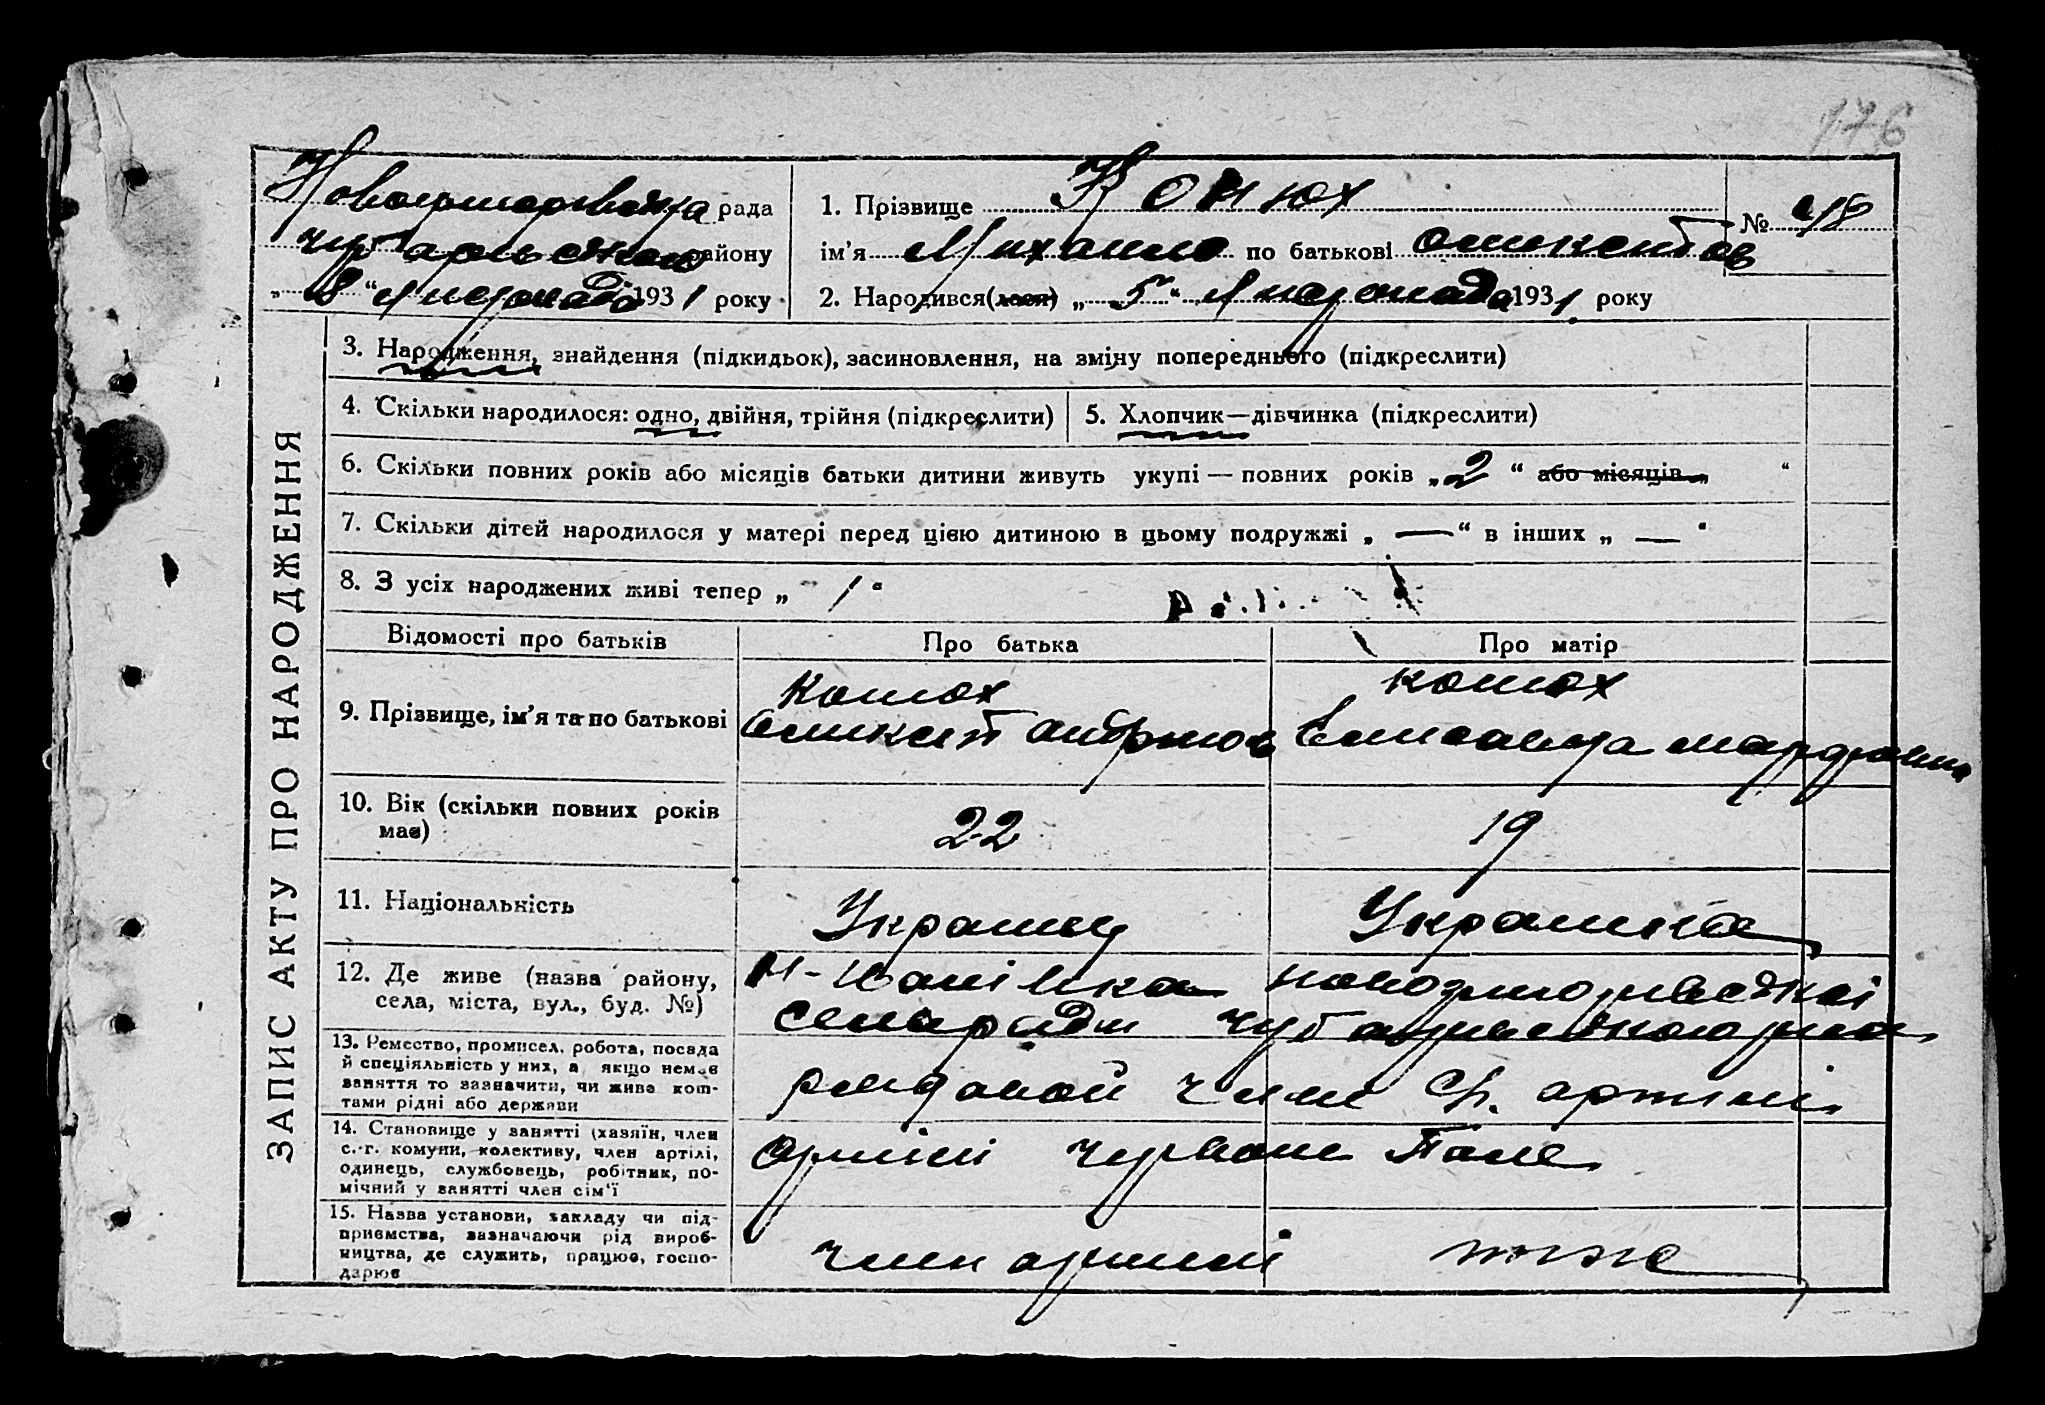 176
рада
району
„ 8 “ Листопада 1931 року
1. Прізвище Конюх
№ 48
ім’я Михайло по батькові
2. Народився(лася) „ 5 “ Листопада 1931 року
ЗАПИС АКТУ ПРО НАРОДЖЕННЯ
3. Народження, знайдення (підкидьок), засиновлення, на зміну попереднього (підкреслити)
4. Скільки народилося: одно, двійня, трійня (підкреслити)
5. Хлопчик—дівчинка (підкреслити)
6. Скільки повних років або місяців батьки дитини живуть укупі — повних років „ 2 “ або місяців „ “
7. Скільки дітей народилося у матері перед цією дитиною в цьому подружжі „ — “ в інших „ — “
8. З усіх народжених живі тепер „ 1 “
Відомості про батьків
Про батька
Про матір
9. Прізвище, ім’я та по батькові
Конюх
Конюх
Елисавета
10. Вік (скільки повних років
має)
22
19
11. Національність
Украінец
Украінка
12. Де живе (назва району,
села, міста, вул., буд. №)
13. Ремество, промисел, робота, посада
й спеціяльність у них, а якщо немає
заняття то зазначити, чи живе кош-
тами рідні або держави
рядовой член с.г. артілі
14. Становище у занятті (хазяїн, член
с.-г. комуни, колективу, член артілі,
одинець, службовець, робітник, по-
мічний у занятті член сім’ї
артілі Червоне Поле
15. Назва установи, закладу чи під-
приємства, зазначаючи рід вироб-
ництва, де служить, працює, госпо-
дарює
член артілі
тоже